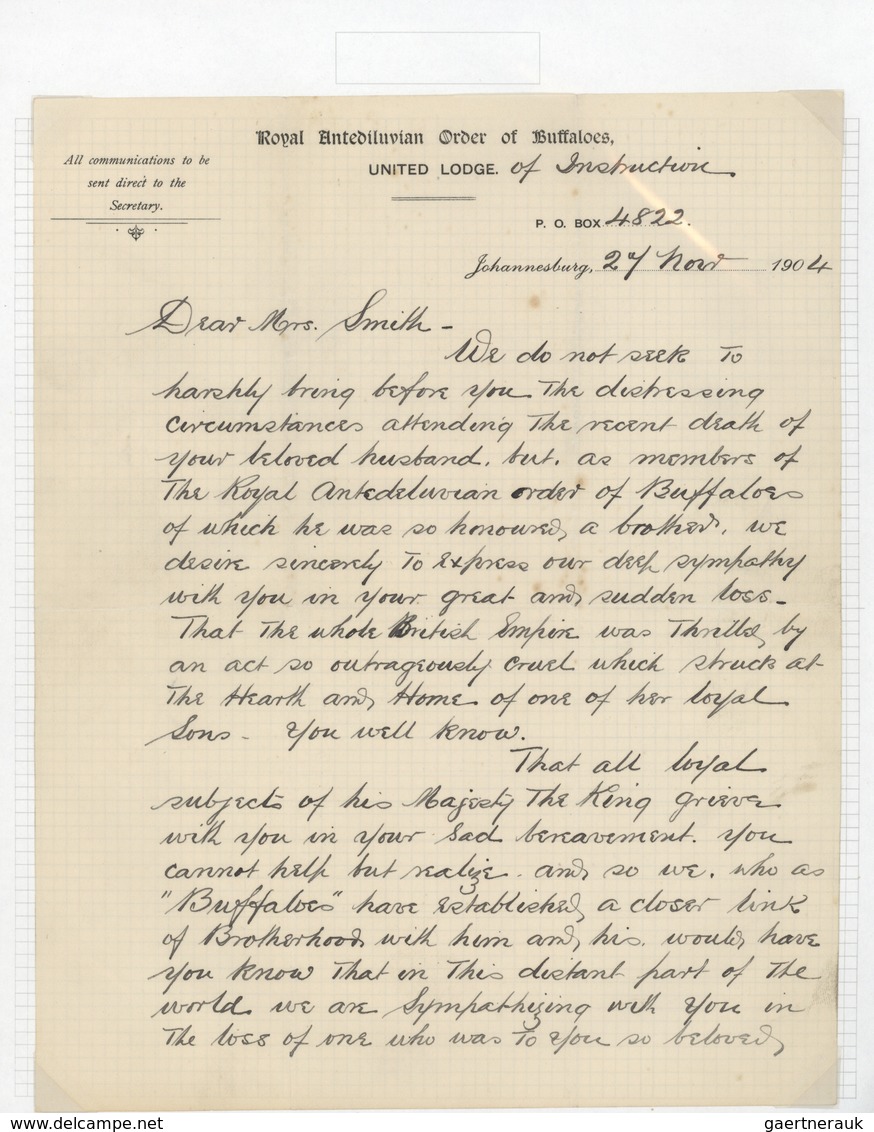 Royal Antediluvian Order of Buffaloes,
All communications to be
sent direct to the
Secretary.
UNITED LODGE. of Instruction
P. O. BOX 4822.
Johannesburg, 27 Novr 1904
Dear Mrs. Smith -
We do not seek to
harshly bring before you the distressing
circumstances attending the recent death of
your beloved husband. but. as members of
The Royal Antedeluvian order of Buffaloes
of which he was so honoured, a brother, we
desire sincerely to express our deep sympathy
with you in your great and sudden loss -
That the whole British Empire was thrilled by
an act so outrageously cruel which struck at
the Hearth and Home of one of her loyal
Sons - you well know.
That all loyal
subjects of his Majesty the King grieve
with you in your sad bereavement. you
cannot help but realize. and so we. who as
"Buffaloes" have established a closer link
of Brotherhood with him and his. would have
you know that in this distant part of the
world we are sympathizing with you in
the loss of one who was to you so beloved
www.delcampe.net
gaertnerauk